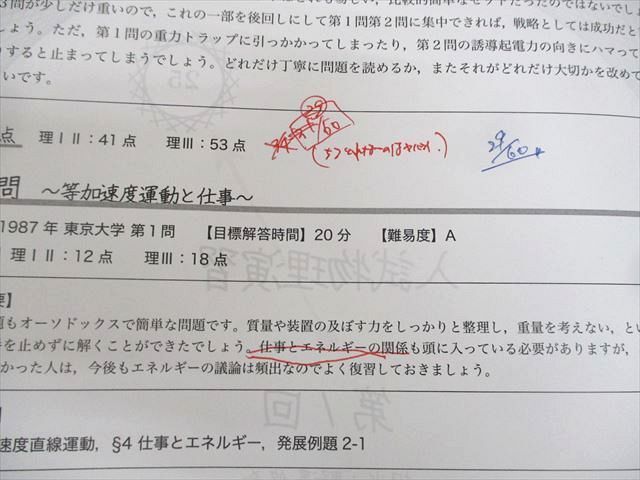 3問が少しだけ重いので，これの一部を後回しにして第1問第2問に集中できれば，戦略としては成功だと
しょう。ただ，第1問の重力トラップに引っかかってしまったり，第2問の誘導起電力の向きにハマって
りすると止まってしまうでしょう。どれだけ丁寧に問題を読めるか，またそれがどれだけ大切かを改めて
いです。
点 理ⅠⅡ：41点 理Ⅲ：53点
29/60
29/60
問 〜等加速度運動と仕事〜
1987年 東京大学 第1問 【目標解答時間】20分 【難易度】A
理ⅠⅡ：12点 理Ⅲ：18点
要】
題もオーソドックスで簡単な問題です。質量や装置の及ぼす力をしっかりと整理し，重量を考えない，とい
を止めずに解くことができたでしょう。仕事とエネルギーの関係も頭に入っている必要がありますが，
かった人は，今後もエネルギーの議論は頻出なのでよく復習しておきましょう。
速度直線運動，§4 仕事とエネルギー，発展例題 2-1